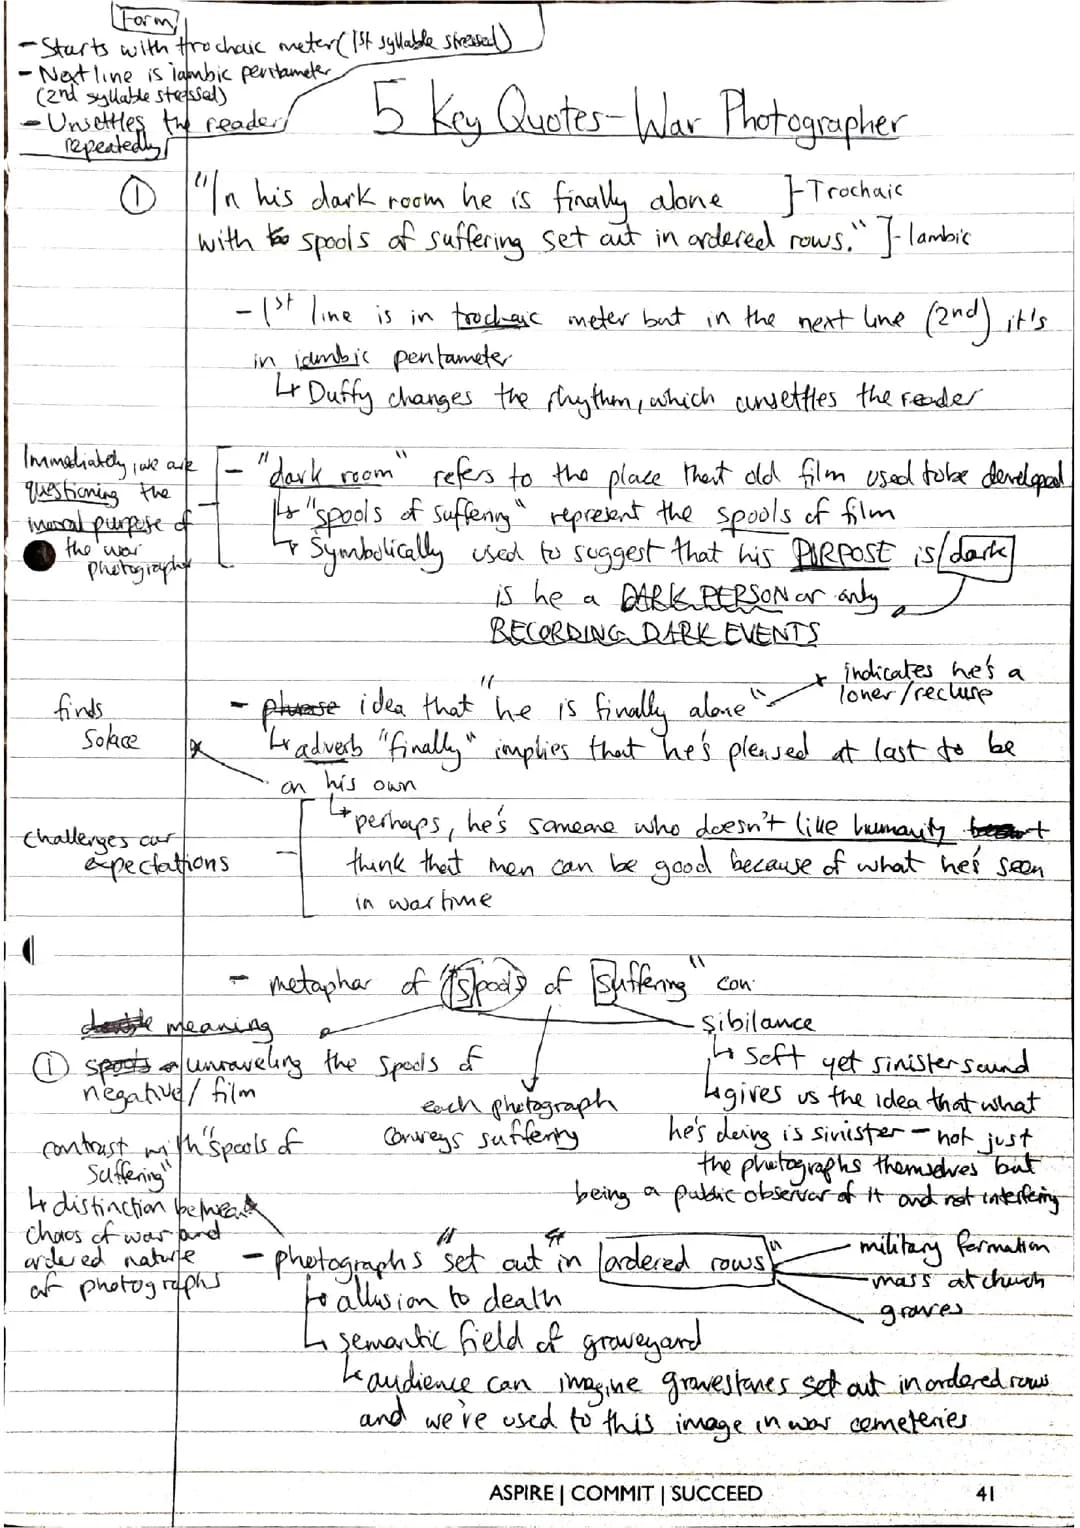 Form
- Starts with trochaic meter (1st syllable stressed)
- Next line is iambic pentameter
(2nd syllable stressed)
- Unsettles the reader
repeatedly
5 Key Quotes - War Photographer
① "In his dark room he is finally alone ]-Trochaic
with spools of suffering set out in ordered rows." ]-Iambic
- 1st line is in trochaic meter but in the next line (2nd) it's
in iambic pentameter
↳ Duffy changes the rhythm, which unsettles the reader
Immediately, we are
questioning the
moral purpose of
the war
photographer
- "dark room" refers to the place that old film used to be developed
↳ "spools of suffering" represent the spools of film
↳ Symbolically used to suggest that his PURPOST is dark
is he a DARK PERSON or only
RECORDING DARK EVENTS
finds
Solace
- phrase idea that "he is finally alone"
indicates he's a
loner/recluse
↳ adverb "finally" implies that he's pleased at last to be
on his own
challenges our
expectations
↳ perhaps, he's someone who doesn't like humanity
think that men can be good because of what he's seen
in wartime
- metaphor of "spools of suffering" con
double meaning
① spools unraveling the spools of
negative / film
each photograph
conveys suffering
sibilance
↳ soft yet sinister sound
↳ gives us the idea that what
he's doing is sinister - not just
the photographs themselves but
being a public observer of it and not interfering
contrast with "spools of
Suffering"
↳ distinction between
chaos of war and
ordered nature
of photographs
- photographs "set out" in "ordered rows"
military formation
mass at church
graves
↳ allusion to death
↳ semantic field of graveyard
↳ audience can imagine gravestones set out in ordered rows
and we're used to this image in war cemeteries
ASPIRE | COMMIT | SUCCEED
41